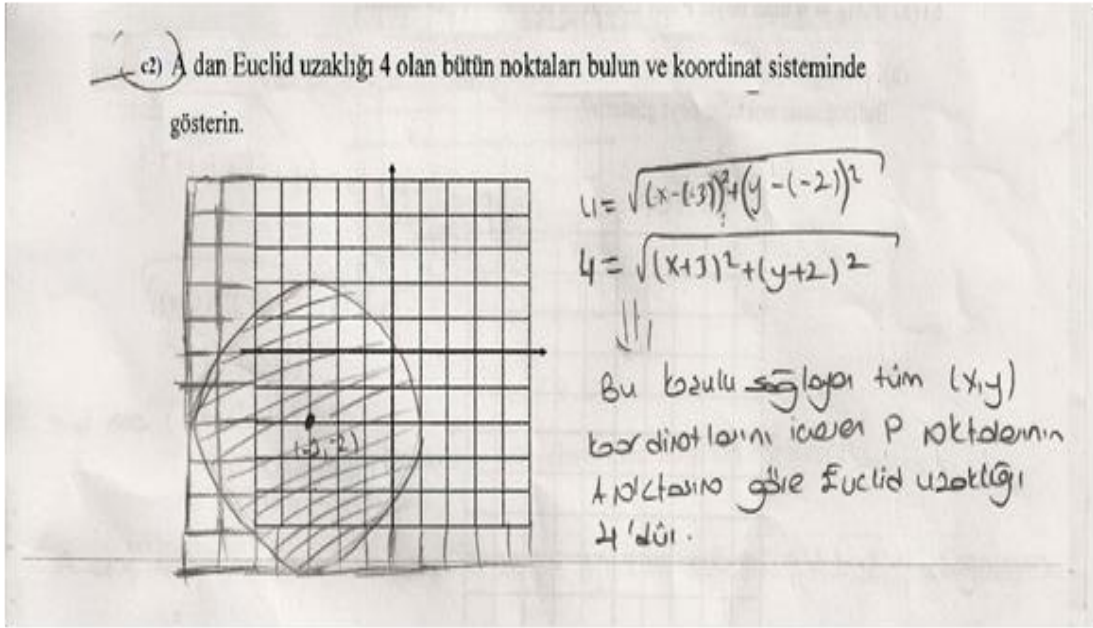 c2) A dan Euclid uzaklığı 4 olan bütün noktaları bulun ve koordinat sisteminde
gösterin.
4= √(x-(-3))²+(y-(-2))²
4= √(x+3)²+(y+2)²
Bu koşulu sağlayan tüm (x,y)
koordinatlarını içeren P noktalarının
A noktasına göre Euclid uzaklığı
4'dür.
(-3,-2)